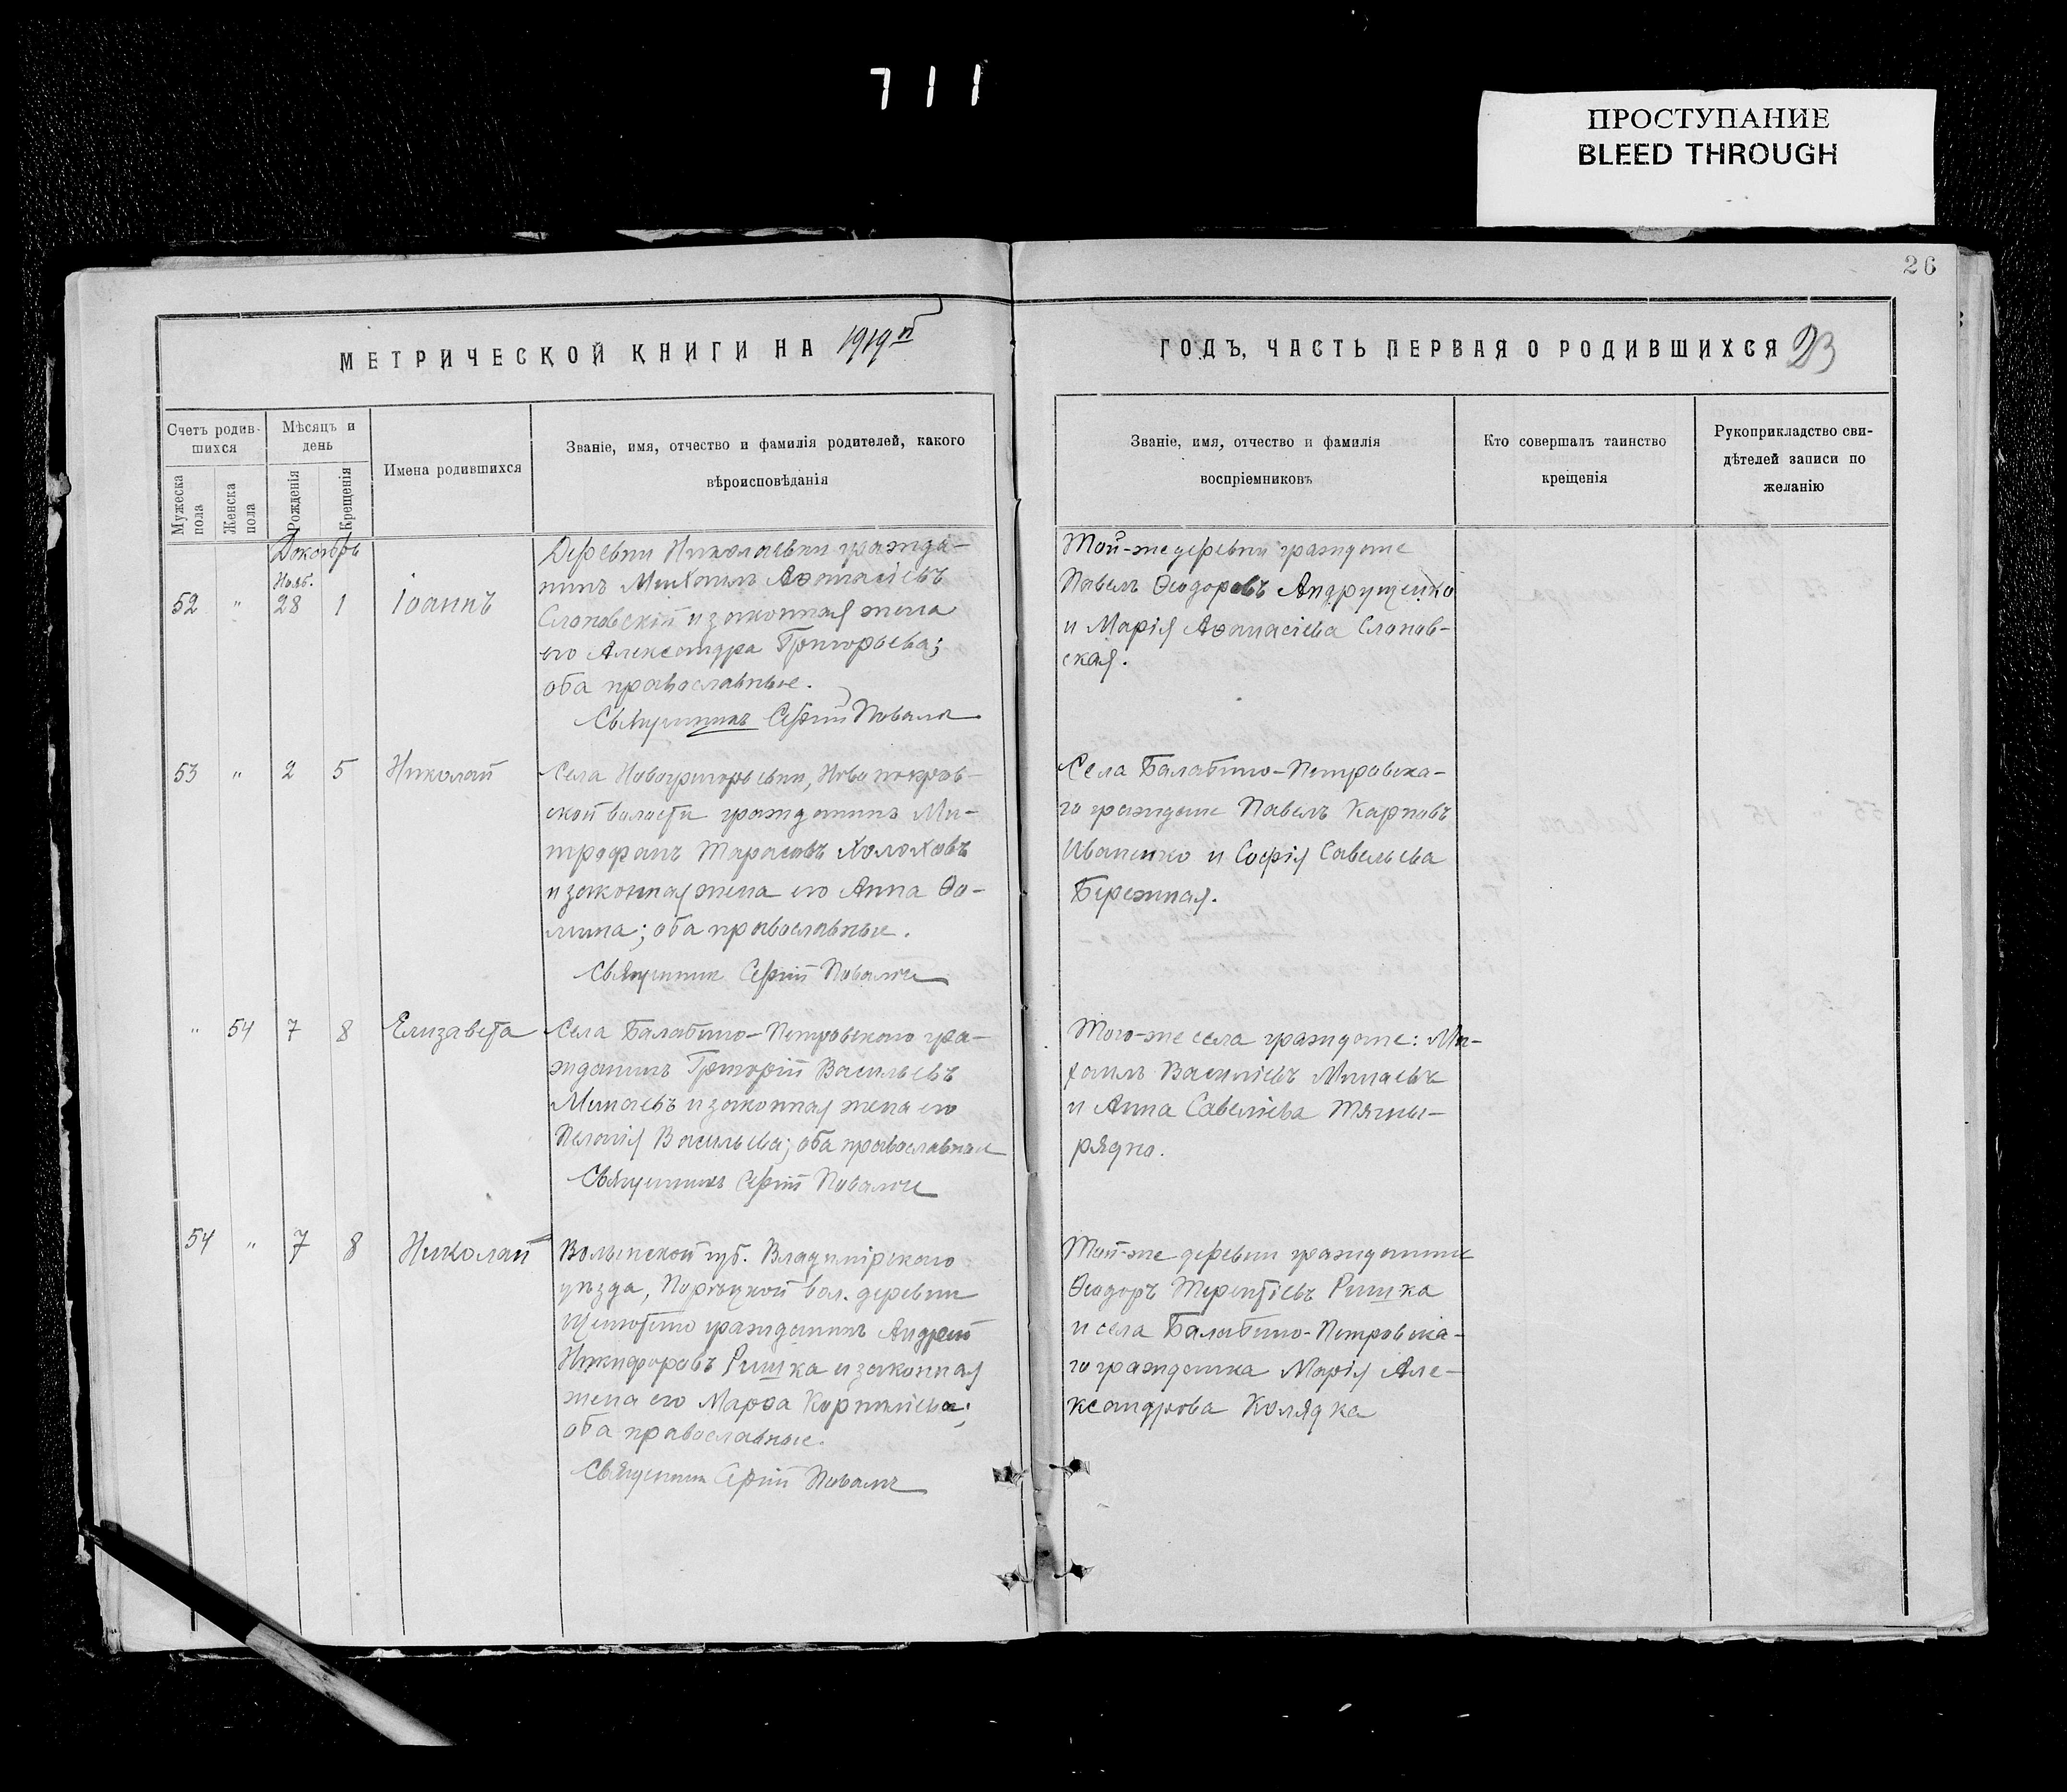 711
ПРОСТУПАНИЕ
BLEED THROUGH
26
МЕТРИЧЕСКОЙ КНИГИ НА 1919й
ГОДЪ, ЧАСТЬ ПЕРВАЯ О РОДИВШИХСЯ 23
Счетъ родив-
шихся
Мѣсяцъ и
день
Имена родившихся
Званіе, имя, отчество и фамилія родителей, какого
вѣроисповѣданія
Мужеска
пола
Женска
пола
Рожденія
Крещенія
Званіе, имя, отчество и фамилія
воспріемниковъ
Кто совершалъ таинство
крещенія
Рукоприкладство сви-
дѣтелей записи по
желанію
Декабрь
Нояб.
52 " 28 1 Іоаннъ
Деревни Николаевки гражда-
нинъ Михаилъ Аѳанасіевъ
Слоновскій и законная жена
его Александра Григорьева;
оба православные.
Священникъ Сергій
Той-же деревни граждане
Павелъ Ѳеодоровъ Андрущенко
и Марія Аѳанасіева Слонов-
ская.
53 " 2 5 Николай
Села Новогригорьевки, Новопокров-
ской волости гражданинъ Ми-
трофанъ Тарасовъ Холоховъ
и законная жена его Анна Ѳо-
мина; оба православные.
Священникъ Сергій
Села Балабино-Петровска-
го граждане Павелъ Карповъ
Иваненко и Софія Савельева
Бережная.
" 54 7 8 Елизавета
Села Балабино-Петровского гра-
жданинъ Григорій Васильевъ
Минаевъ и законная жена его
Пелагія Васильева; оба православные
Священникъ Сергій
Того-же села граждане: Ми-
хаилъ Василіевъ Минаевъ
и Анна Савеліева Тягны-
рядно.
54 " 7 8 Николай
Волынской губ. Владимірскаго
уѣзда, Порѣцкой вол. деревни
гражданинъ Андрей
Никифоровъ Ришка и законная
жена его Марѳа Корниліева;
оба православные.
Священникъ Сергій
Той-же деревни гражданинъ
Ѳеодоръ Терентіевъ Ришка
и села Балабино-Петровска-
го гражданка Марія Але-
ксандрова Колядка